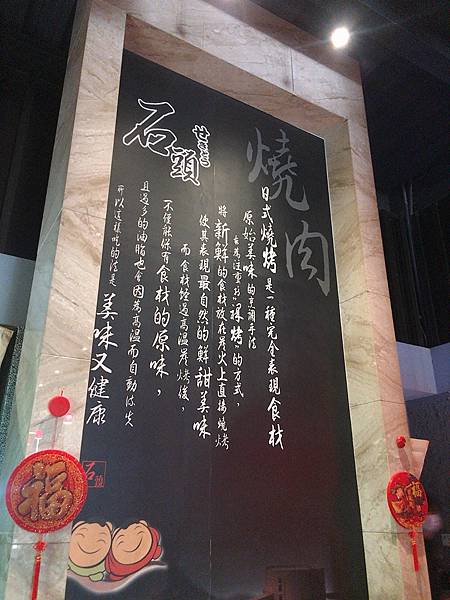 燒肉
日式燒烤是一種完全表現食材
原始美味的烹調手法
尤為注重於"裸烤"的方式，
將新鮮的食材放在炭火上直接燒烤
使其表現最自然的鮮甜美味
而食材經過高溫炭烤後，
不僅能保有食材的原味，
且過多的油脂也會因為高溫而自動流失
所以這樣吃的法是美味又健康
石頭
石頭
福